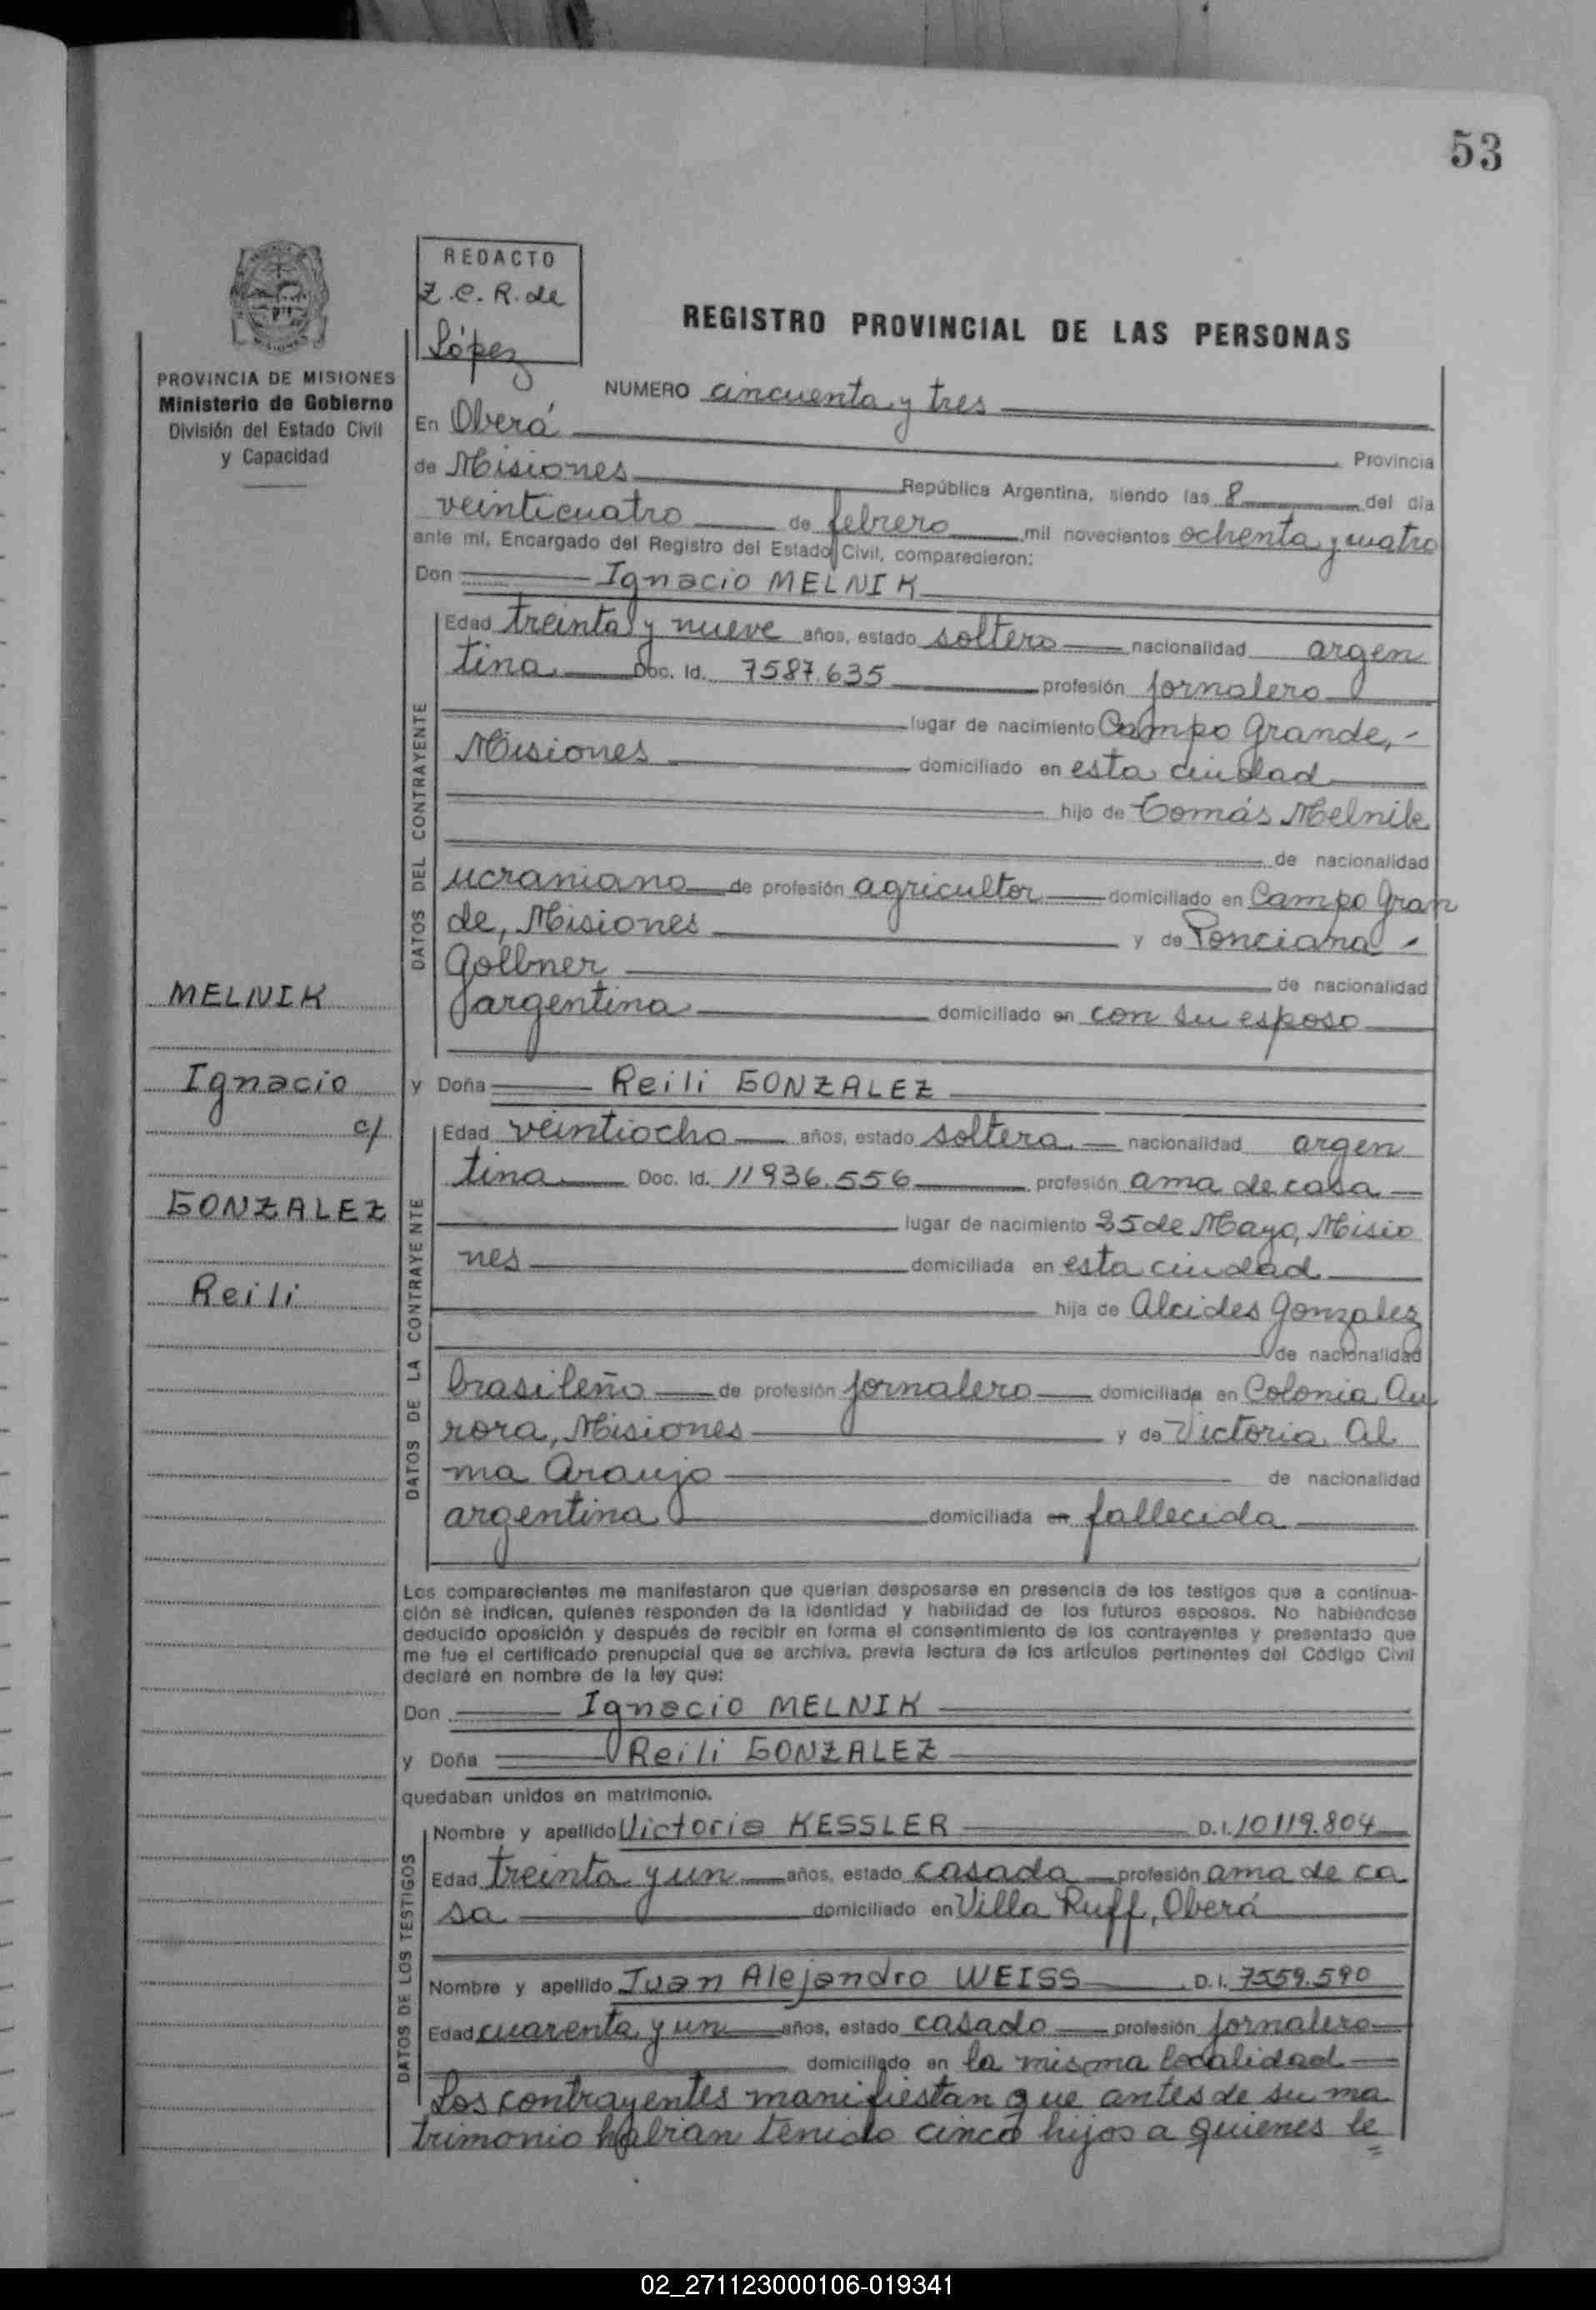 53
REDACTO
Z.C.R. de
López
REGISTRO PROVINCIAL DE LAS PERSONAS
PROVINCIA DE MISIONES
Ministerio de Gobierno
División del Estado Civil
y Capacidad
NUMERO cincuenta y tres
En Oberá Provincia
de Misiones República Argentina, siendo las 8 del día
veinticuatro de febrero mil novecientos ochenta y cuatro
ante mí, Encargado del Registro del Estado Civil, comparecieron:
Don Ignacio MELNIK
DATOS DEL CONTRAYENTE
Edad treinta y nueve años, estado soltero nacionalidad argen
tina Doc. Id. 7587.635 profesión jornalero
lugar de nacimiento Campo Grande,-
Misiones domiciliado en esta ciudad
hijo de Tomás Melnik
de nacionalidad
ucraniano de profesión agricultor domiciliado en Campo Gran
de, Misiones y de Ponciana -
Gollner de nacionalidad
argentina domiciliado en con su esposo
MELNIK
Ignacio
c/
GONZALEZ
Reili
y Doña Reili GONZALEZ
DATOS DE LA CONTRAYENTE
Edad veintiocho años, estado soltera nacionalidad argen
tina Doc. Id. 11936.556 profesión ama de casa
lugar de nacimiento 25 de Mayo, Misio
nes domiciliada en esta ciudad
hija de Alcides Gonzalez
de nacionalidad
brasileño de profesión jornalero domiciliada en Colonia Au
rora, Misiones y de Victoria Al
ma Araujo de nacionalidad
argentina domiciliada en fallecida
Los comparecientes me manifestaron que querían desposarse en presencia de los testigos que a continua-
ción se indican, quienes responden de la identidad y habilidad de los futuros esposos. No habiéndose
deducido oposición y después de recibir en forma el consentimiento de los contrayentes y presentado que
me fue el certificado prenupcial que se archiva, previa lectura de los artículos pertinentes del Código Civil
declaré en nombre de la ley que:
Don Ignacio MELNIK
y Doña Reili GONZALEZ
quedaban unidos en matrimonio.
DATOS DE LOS TESTIGOS
Nombre y apellido Victoria KESSLER D.I. 10119.804
Edad treinta y un años, estado casada profesión ama de ca
sa domiciliado en Villa Ruff, Oberá
Nombre y apellido Juan Alejandro WEISS D.I. 7559.590
Edad cuarenta y un años, estado casado profesión jornalero
domiciliado en la misma localidad
Los contrayentes manifiestan que antes de su ma
trimonio habrian tenido cinco hijos a quienes le
=
02_271123000106-019341